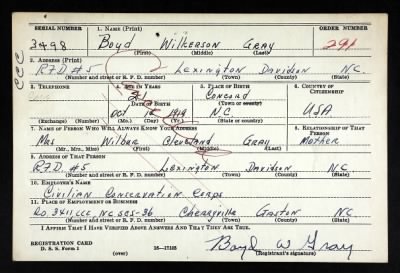 SERIAL NUMBER 1. NAME (Print) ORDER NUMBER
3498 Boyd Wilkerson Gray 291
(First) (Middle) (Last)
2. ADDRESS (Print)
R.F.D #5 Lexington Davidson N.C.
(Number and street or R. F. D. number) (Town) (County) (State)
3. TELEPHONE 4. AGE IN YEARS 5. PLACE OF BIRTH 6. COUNTRY OF CITIZENSHIP
21 Concord
DATE OF BIRTH (Town or county)
Oct 15 1919 N.C. USA
(Exchange) (Number) (Mo.) (Day) (Yr.) (State or country)
7. NAME OF PERSON WHO WILL ALWAYS KNOW YOUR ADDRESS 8. RELATIONSHIP OF THAT PERSON
Mrs Wilbur Cleveland Gray Mother
(Mr., Mrs., Miss) (First) (Middle) (Last)
9. ADDRESS OF THAT PERSON
R.F.D. #5 Lexington Davidson N.C.
(Number and street or R. F. D. number) (Town) (County) (State)
10. EMPLOYER'S NAME
Civilian Conservation Corps
11. PLACE OF EMPLOYMENT OR BUSINESS
Co. 3411 CCC, NC SCS-36 Cherryville Gaston NC
(Number and street or R. F. D. number) (Town) (County) (State)
I AFFIRM THAT I HAVE VERIFIED ABOVE ANSWERS AND THAT THEY ARE TRUE.
REGISTRATION CARD
D. S. S. Form 1 16—17105 Boyd W. Gray
(over) (Registrant's signature)
CCC